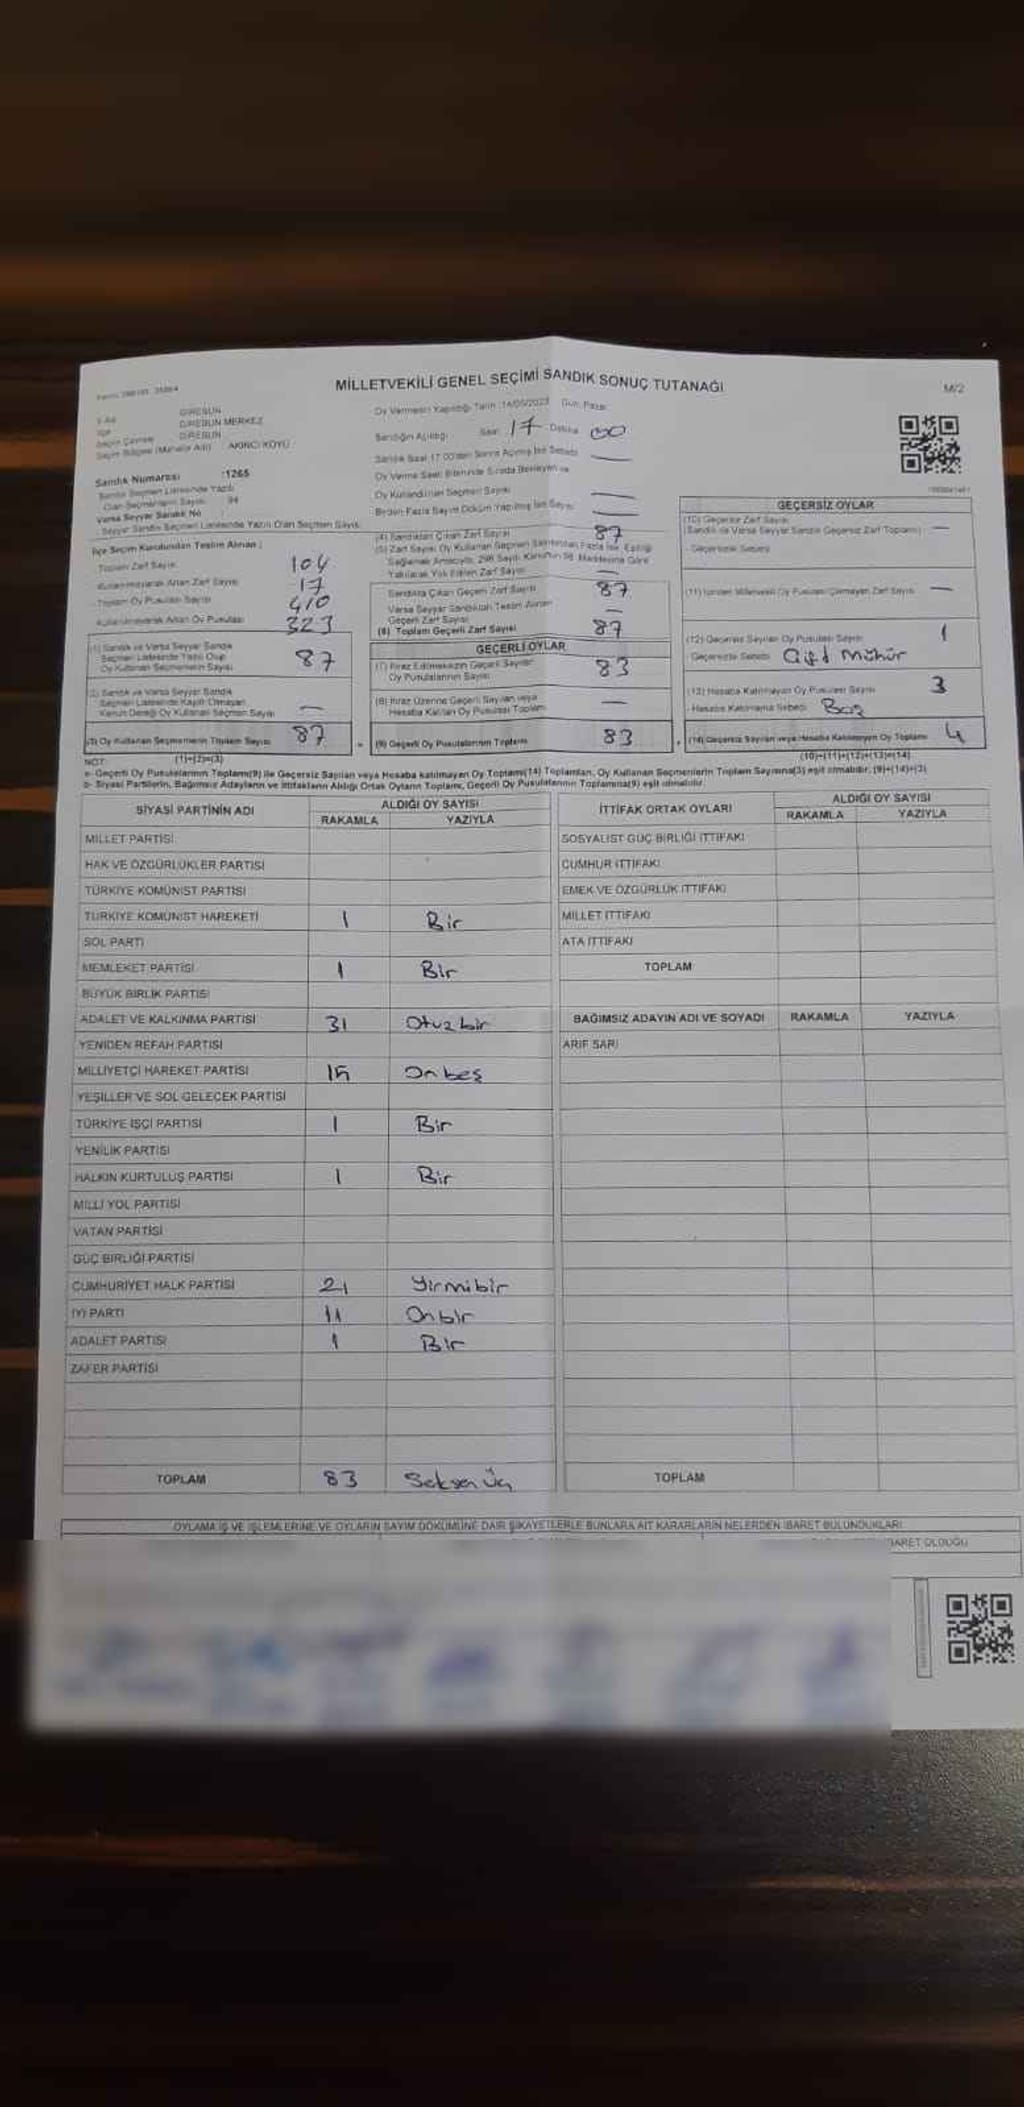 MİLLETVEKİLİ GENEL SEÇİMİ SANDIK SONUÇ TUTANAĞI
M/2
GİRESUN
GİRESUN MERKEZ
GİRESUN
AKINCI KÖYÜ
Oy Vermenin Yapıldığı Tarih :14/05/2023 Gün: Pazar
Sandığın Açıldığı Saat 17 Dakika 00
Sandık Saat 17:00'den Sonra Açılmış İse Sebebi
Oy Verme Saati Bitiminde Sırada Bekleyen ve
Oy Kullandırılan Seçmen Sayısı
Birden Fazla Sayım Döküm Yapılmış İse Sayısı
Sandık Numarası :1265
Sandık Seçmen Listesinde Yazılı
Olan Seçmenlerin Sayısı 94
Varsa Seyyar Sandık No
Seyyar Sandık Seçmen Listesinde Yazılı Olan Seçmen Sayısı
İlçe Seçim Kurulundan Teslim Alınan ;
Toplam Zarf Sayısı 104
Kullanılmayarak Artan Zarf Sayısı 17
Toplam Oy Pusulası Sayısı 410
Kullanılmayarak Artan Oy Pusulası 323
(1) Sandık ve Varsa Seyyar Sandık
Seçmen Listesinde Yazılı Olup
Oy Kullanan Seçmenlerin Sayısı 87
(2) Sandık ve Varsa Seyyar Sandık
Seçmen Listesinde Kayıtlı Olmayan
Kanun Gereği Oy Kullanan Seçmen Sayısı —
(3) Oy Kullanan Seçmenlerin Toplam Sayısı 87
(1)+(2)=(3)
(4) Sandıktan Çıkan Zarf Sayısı 87
(5) Zarf Sayısı Oy Kullanan Seçmen Sayısından Fazla İse, Eşitliği
Sağlamak Amacıyla, 298 Sayılı Kanun'un 98. Maddesine Göre
Yakılarak Yok Edilen Zarf Sayısı —
Sandıkta Çıkan Geçerli Zarf Sayısı 87
Varsa Seyyar Sandıktan Teslim Alınan
Geçerli Zarf Sayısı —
(6) Toplam Geçerli Zarf Sayısı 87
GEÇERLİ OYLAR
(7) İtiraz Edilmeksizin Geçerli Sayılan
Oy Pusulalarının Sayısı 83
(8) İtiraz Üzerine Geçerli Sayılan veya
Hesaba Katılan Oy Pusulası Toplamı —
(9) Geçerli Oy Pusulalarının Toplamı 83
GEÇERSİZ OYLAR
(10) Geçersiz Zarf Sayısı
(Sandık ve Varsa Seyyar Sandık Geçersiz Zarf Toplamı) —
Geçersizlik Sebebi
(11) İçinden Milletvekili Oy Pusulası Çıkmayan Zarf Sayısı —
(12) Geçersiz Sayılan Oy Pusulası Sayısı 1
Geçersizlik Sebebi Çift Mühür
(13) Hesaba Katılmayan Oy Pusulası Sayısı 3
Hesaba Katılmama Sebebi Boş
(14) Geçersiz Sayılan veya Hesaba Katılmayan Oy Toplamı 4
(10)+(11)+(12)+(13)=(14)
NOT:
a- Geçerli Oy Pusulalarının Toplamı(9) ile Geçersiz Sayılan veya Hesaba katılmayan Oy Toplamı(14) Toplamları, Oy Kullanan Seçmenlerin Toplam Sayısına(3) eşit olmalıdır. (9)+(14)=(3)
b- Siyasi Partilerin, Bağımsız Adayların ve İttifakların Aldığı Ortak Oyların Toplamı, Geçerli Oy Pusulalarının Toplamına(9) eşit olmalıdır.
SİYASİ PARTİNİN ADI
ALDIĞI OY SAYISI
RAKAMLA YAZIYLA
MİLLET PARTİSİ
HAK VE ÖZGÜRLÜKLER PARTİSİ
TÜRKİYE KOMÜNİST PARTİSİ
TÜRKİYE KOMÜNİST HAREKETİ 1 Bir
SOL PARTİ
MEMLEKET PARTİSİ 1 Bir
BÜYÜK BİRLİK PARTİSİ
ADALET VE KALKINMA PARTİSİ 31 Otuz bir
YENİDEN REFAH PARTİSİ
MİLLİYETÇİ HAREKET PARTİSİ 15 On beş
YEŞİLLER VE SOL GELECEK PARTİSİ
TÜRKİYE İŞÇİ PARTİSİ 1 Bir
YENİLİK PARTİSİ
HALKIN KURTULUŞ PARTİSİ 1 Bir
MİLLİ YOL PARTİSİ
VATAN PARTİSİ
GÜÇ BİRLİĞİ PARTİSİ
CUMHURİYET HALK PARTİSİ 21 Yirmibir
İYİ PARTİ 11 Onbir
ADALET PARTİSİ 1 Bir
ZAFER PARTİSİ
TOPLAM 83 Seksen üç
İTTİFAK ORTAK OYLARI
ALDIĞI OY SAYISI
RAKAMLA YAZIYLA
SOSYALİST GÜÇ BİRLİĞİ İTTİFAKI
CUMHUR İTTİFAKI
EMEK VE ÖZGÜRLÜK İTTİFAKI
MİLLET İTTİFAKI
ATA İTTİFAKI
TOPLAM
BAĞIMSIZ ADAYIN ADI VE SOYADI RAKAMLA YAZIYLA
ARİF SARI
TOPLAM
OYLAMA İŞ VE İŞLEMLERİNE VE OYLARIN SAYIM DÖKÜMÜNE DAİR ŞİKAYETLERLE BUNLARA AİT KARARLARIN NELERDEN İBARET BULUNDUKLARI